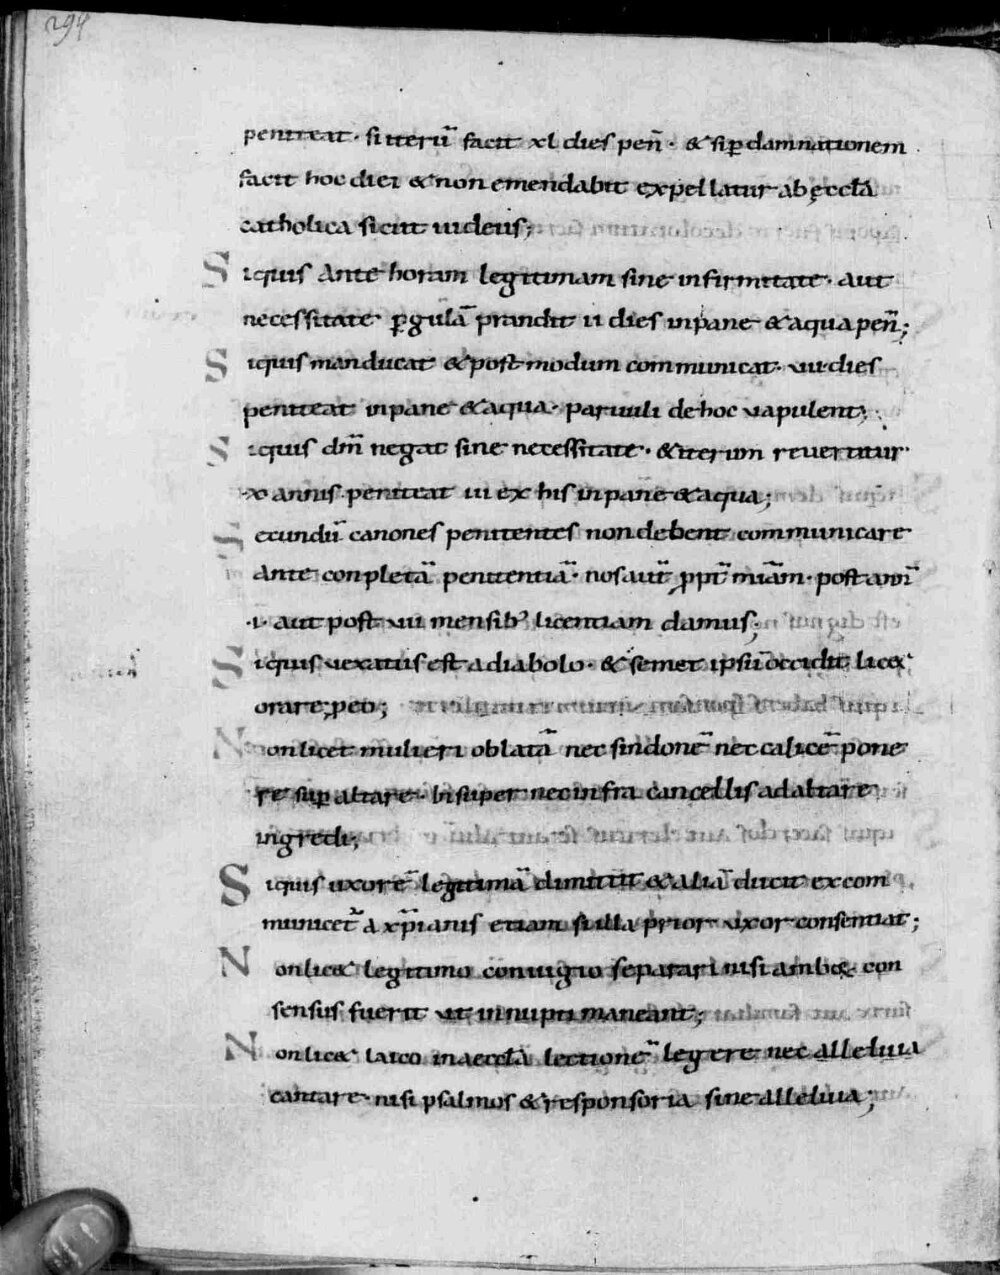 294
peniteat · si iterū facit xl dies peñ · & sup̱ damnationem
facit hoc diei & non emendabit expellatur ab ęcclā
catholica sicut iudeus;
Siquis Ante horam legitimam sine infirmitate · aut
necessitate p̱ gulā prandit ii dies in pane & aqua peñ;
Siquis manducat & post modum communicat · vii · dies
peniteat in pane & aqua · paruuli de hoc vapulent;
Siquis dm̄ negat sine necessitate · & iterum reuertitur
· x annis · peniteat iii ex his in pane & aqua;
Secundū canones penitentes non debent communicare
Ante conpletā penitentiā · nos aut̄ p̱pt̄ miam̄ · post annū
· i · aut post vii mensib; licentiam damus;
Siquis vexatus est a diabolo · & semet ipsū occidit lic&
orare p̱ eo;
Non licet mulieri oblatā nec sindonē nec calicē pone
re sup̱ altare · Insuper nec infra cancellis ad altare
ingredi;
Siquis uxorē legitimā dimittit & aliā ducit excom
municet̄ A xp̄ianis etiam si illa prior uxor consentiat;
Non lic& legitimo coniugio separari nisi amboꝝ · con
sensus fuerit ut innupti maneant;
Non lic& laico in aecclā lectionē legere nec alleluia
cantare · nisi psalmos & responsoria sine alleluia;